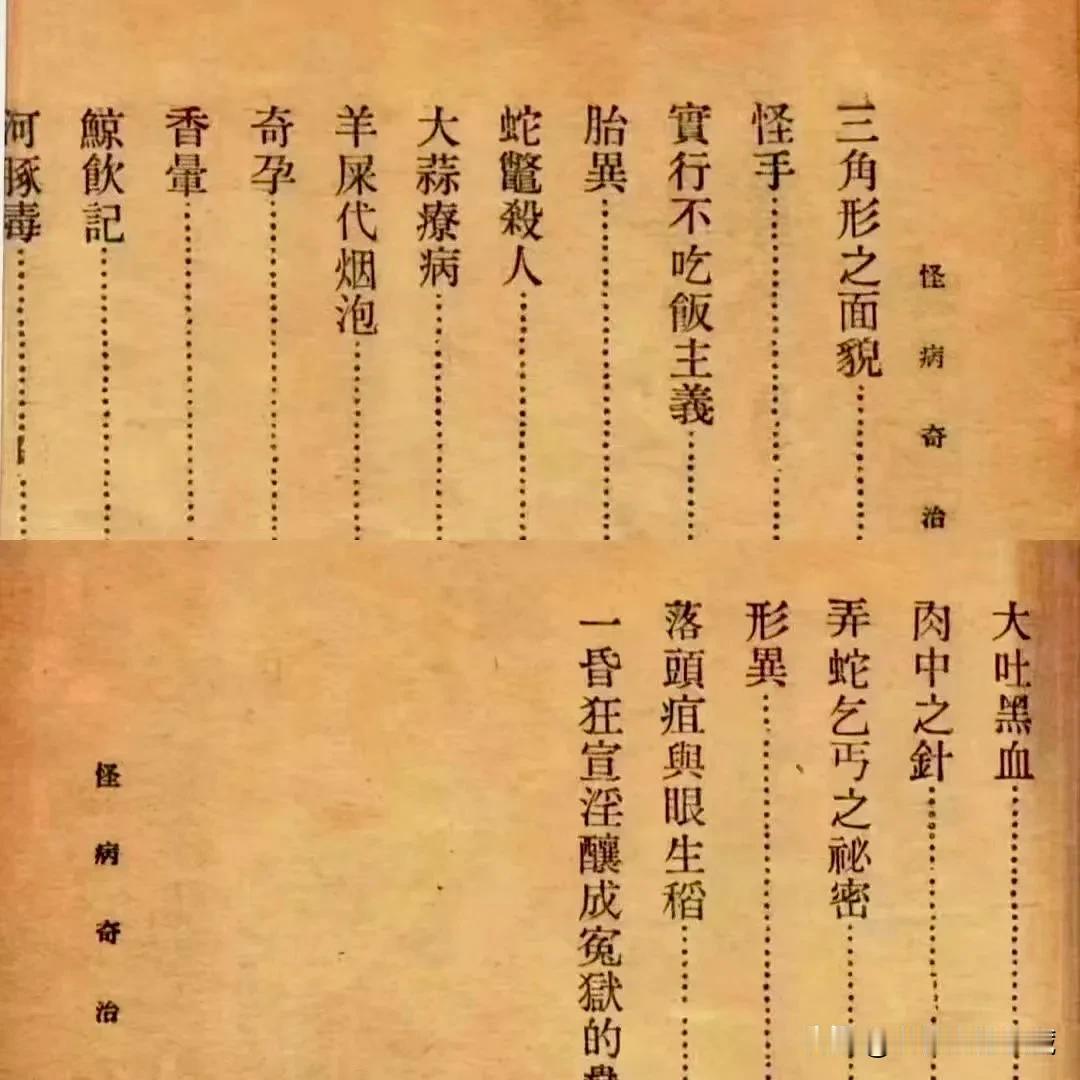 怪病奇治
三角形之面貌
怪手
實行不吃飯主義
胎異
蛇鼈殺人
大蒜療病
羊屎代烟泡
奇孕
香暈
鯨飲記
河豚毒
大吐黑血
肉中之針
弄蛇乞丐之祕密
形異
落頭疽與眼生稻
一昏狂宣淫釀成冤獄的
怪病奇治